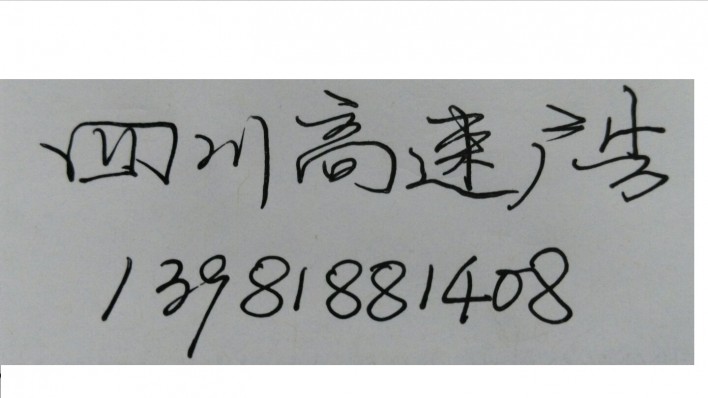 四川高速广告
13981881408